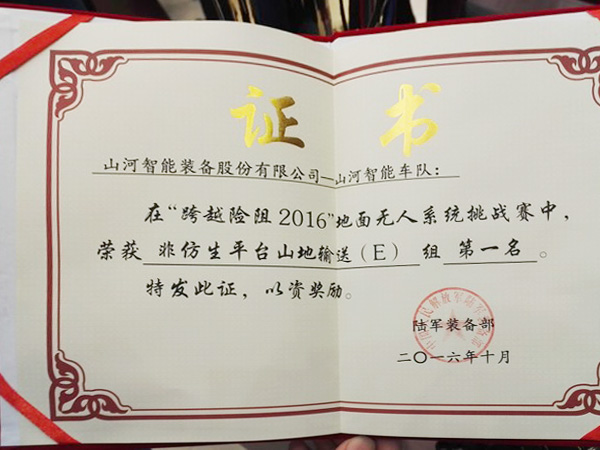 证书
山河智能装备股份有限公司—山河智能车队：
在“跨越险阻2016”地面无人系统挑战赛中，
荣获 非仿生平台山地输送（E） 组 第一名 。
特发此证，以资奖励。
陆军装备部
二〇一六年十月